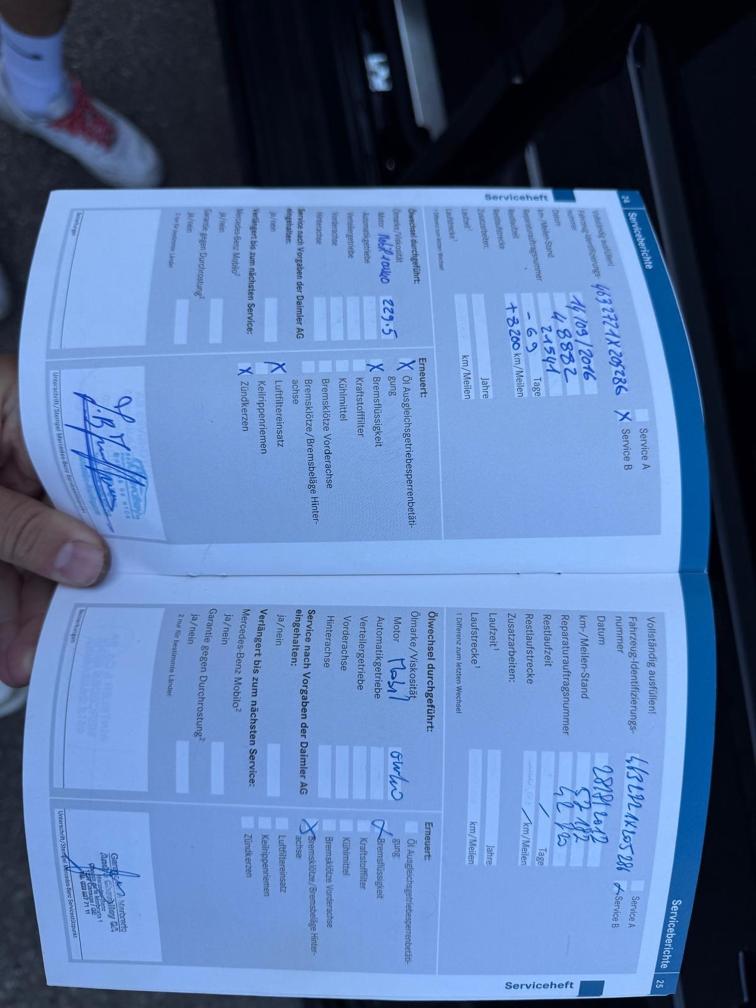 24 Serviceberichte
Vollständig ausfüllen!
Fahrzeug-Identifizierungs-
nummer
Service A
X Service B
Datum 14/09/2016
km-/Meilen-Stand 48882
Reparaturauftragsnummer 21541
Restlaufzeit - 69 Tage
Restlaufstrecke +8200 km/Meilen
Zusatzarbeiten:
Laufzeit¹ Jahre
Laufstrecke¹ km/Meilen
¹ Differenz zum letzten Wechsel
Ölwechsel durchgeführt:
Ölmarke/Viskosität
Motor 229.5
Automatikgetriebe
Verteilergetriebe
Vorderachse
Hinterachse
Service nach Vorgaben der Daimler AG
eingehalten:
ja/nein
Verlängert bis zum nächsten Service:
Mercedes-Benz Mobilo²
ja/nein
Garantie gegen Durchrostung²
ja/nein
2 nur für bestimmte Länder
Bemerkungen
Erneuert:
X Öl Ausgleichsgetriebesperrenbetäti-
gung
X Bremsflüssigkeit
Kraftstofffilter
Kühlmittel
Bremsklötze Vorderachse
Bremsklötze/Bremsbeläge Hinter-
achse
X Luftfiltereinsatz
Keilrippenriemen
X Zündkerzen
Serviceheft
Serviceberichte 25
Vollständig ausfüllen!
Fahrzeug-Identifizierungs-
nummer
Service A
Service B
Datum
km-/Meilen-Stand
Reparaturauftragsnummer
Restlaufzeit / Tage
Restlaufstrecke / km/Meilen
Zusatzarbeiten:
Laufzeit¹ Jahre
Laufstrecke¹ km/Meilen
¹ Differenz zum letzten Wechsel
Ölwechsel durchgeführt:
Ölmarke/Viskosität
Motor Mobil
Automatikgetriebe
Verteilergetriebe
Vorderachse
Hinterachse
Service nach Vorgaben der Daimler AG
eingehalten:
ja/nein
Verlängert bis zum nächsten Service:
Mercedes-Benz Mobilo²
ja/nein
Garantie gegen Durchrostung²
ja/nein
2 nur für bestimmte Länder
Bemerkungen
Erneuert:
Öl Ausgleichsgetriebesperrenbetäti-
gung
X Bremsflüssigkeit
Kraftstofffilter
Kühlmittel
Bremsklötze Vorderachse
X Bremsklötze/Bremsbeläge Hinter-
achse
Luftfiltereinsatz
Keilrippenriemen
Zündkerzen
Serviceheft